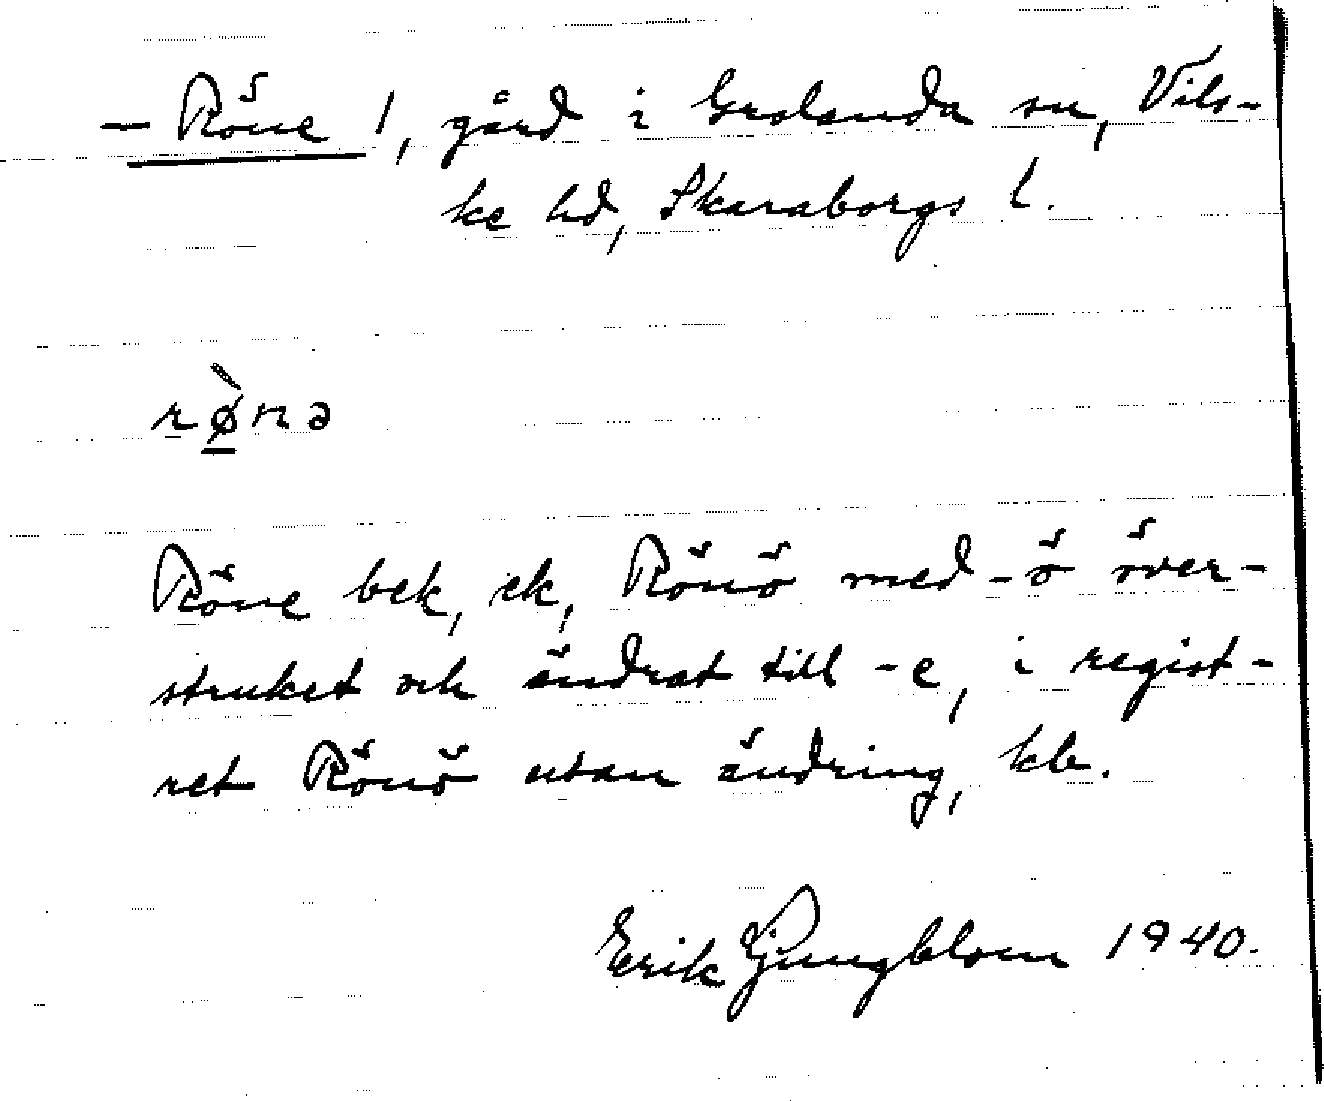 – Röne 1, gård i Grolanda sn, Vils-
ke hd, Skaraborgs l.
rø̀nə
Röne bek, ek, Rönö med -ö över-
struket och ändrat till -e, i regist-
ret Rönö utan ändring, kb.
Erik Ljungblom 1940.